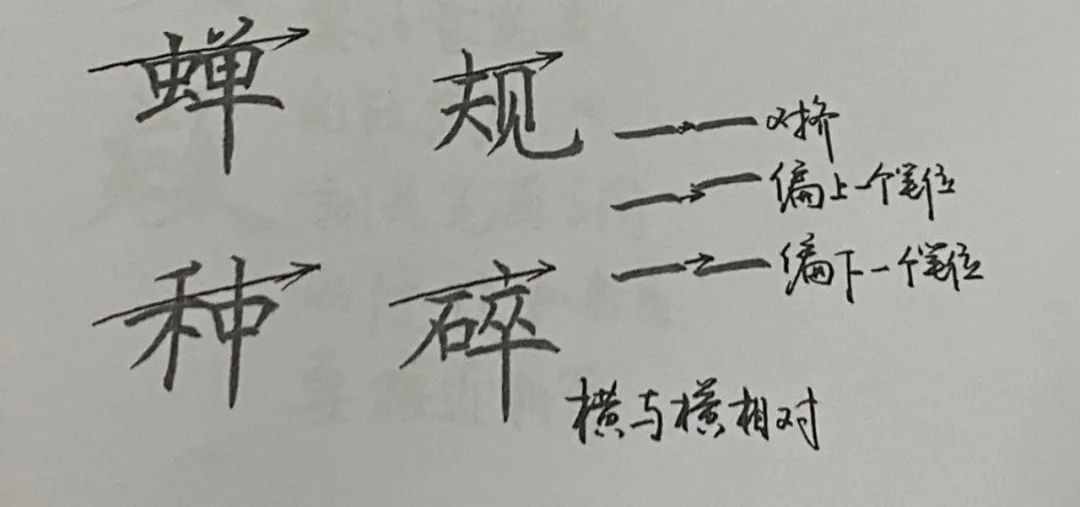 蝉 规
对挤
偏上一个笔位
种 碎
偏下一个笔位
横与横相对